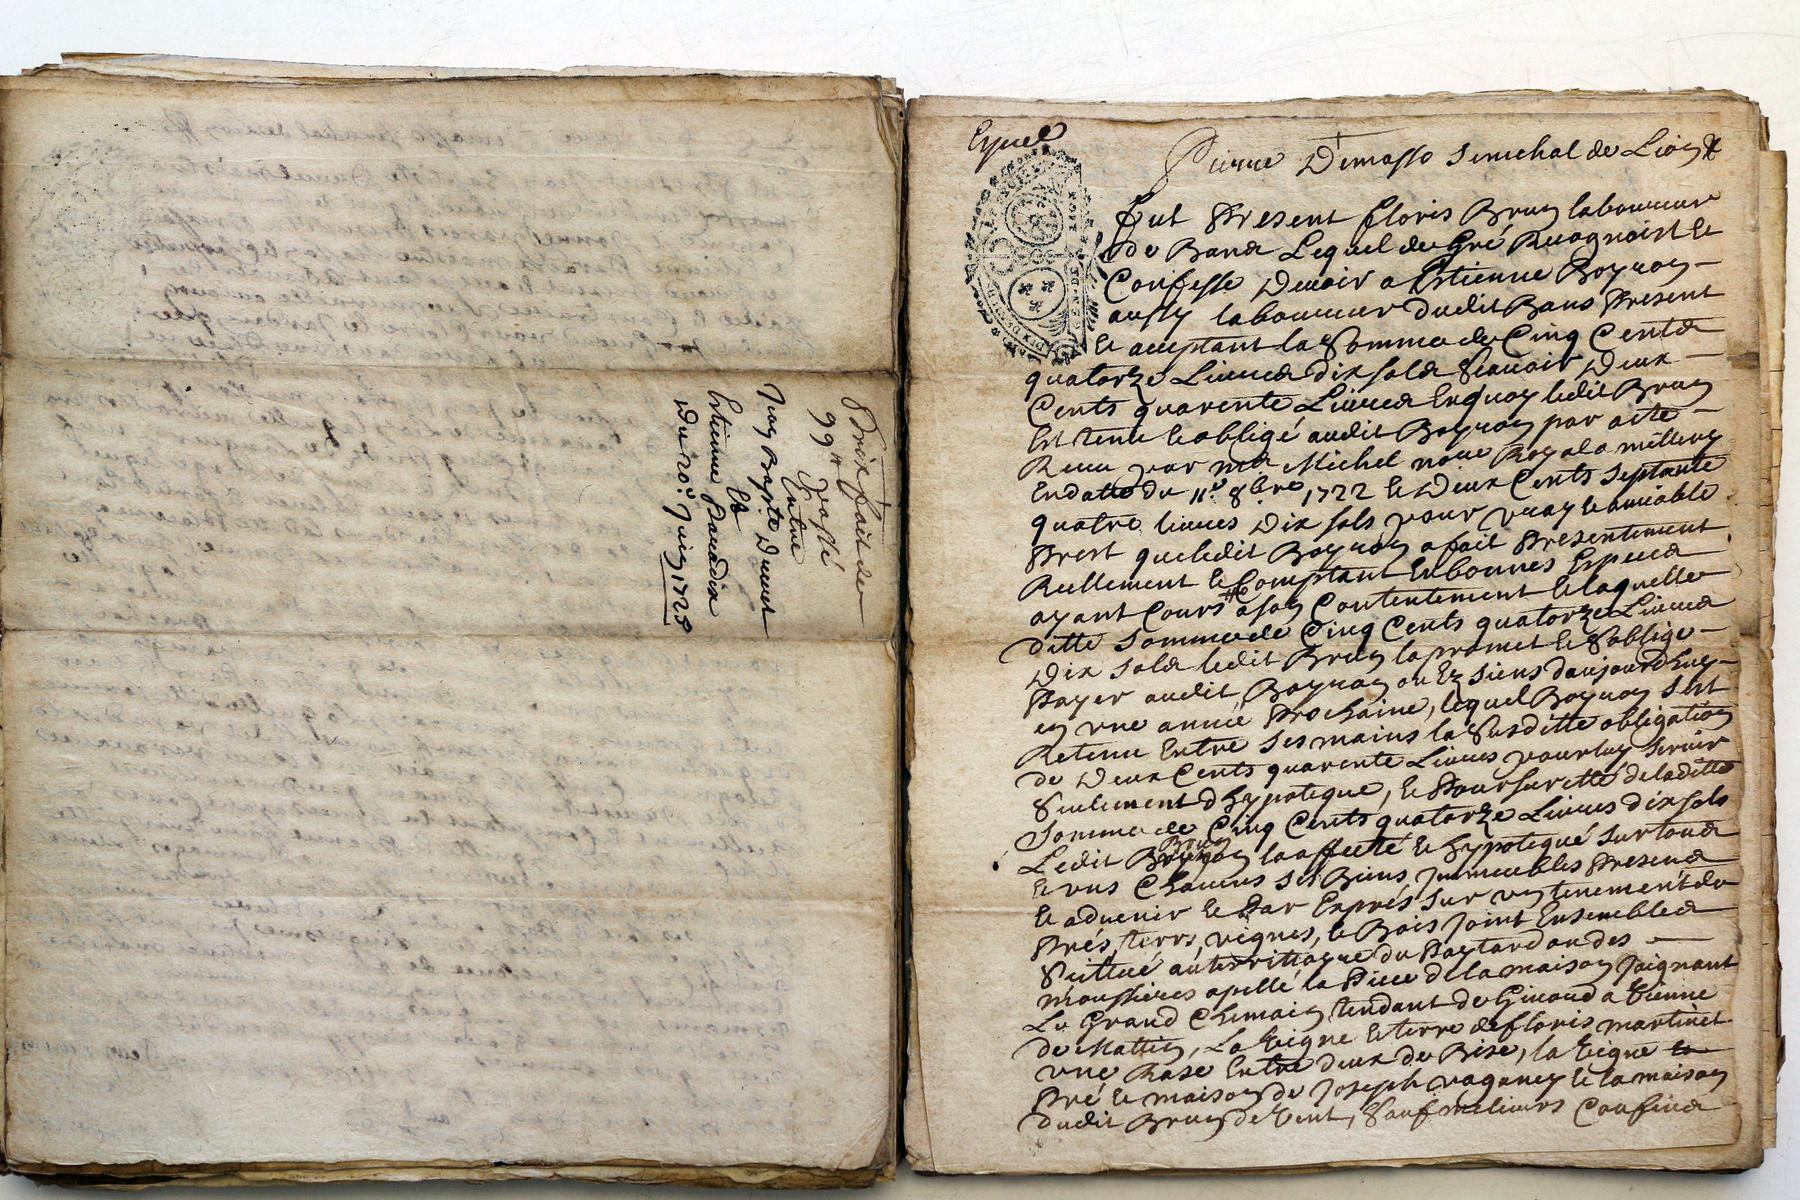 Prix fait de
99# passé
Entre
Jean Baptte Duvert
Et
Estienne
Du 20e Juin 1725
Pierre Demasso Senechal de Lion
Fut Present Floris Brun laboureur
de Bans Lequel de Gré Recognoist et
Confesse Devoir a Estienne Boyron
aussy laboureur dudit Bans Present
et aceptant la Somme de Cinq Cents
quatorze Livres dix sols Scavoir Deux
Cents quarente Livres Enquoy ledit Brun
Est tenu et obligé audit Boyron par acte
Receu par me Michel no.re Royal a millery
En datte du 11e 8bre 1722 et Deux Cents septante
quatre livres Dix sols pour vray et amiable
Prest que ledit Boyron a fait Presentement
Reellement et Comptant En bonnes Especes
ayant Cours a son Contentement et laquelle
ditte Somme de Cinq Cents quatorze Livres
Dix sols ledit Brun la promet et S'oblige
Payer audit Boyron ou Ez siens d'aujourdhuy
en une année Prochaine, lequel Boyron s'est
Retenu Entre ses mains la Susditte obligation
de Deux Cents quarente Livres pour luy servir
Seulement d'hypoteque, et Pour surette de laditte
Somme de Cinq Cents quatorze Livres dix sols
Ledit Brun la affecté et hypotequé sur tous
et uns Chacuns ses Biens Immeubles Presens
et advenir et Par Exprés sur un tenement de
Prés, terres, vignes, et Bois Joint Ensembles
Scittué au territoire du
moussieres apellé la Piece de la maison Joignant
Le Grand Chemain tendant de Givord a Vienne
de Mattin, La Vigne et terre de floris martinet
une Rase Entre deux de Bise, la Vigne
Pré et maison de Joseph vaganey et la maison
dudit Brun de Vent, Sauf meilleurs Confins